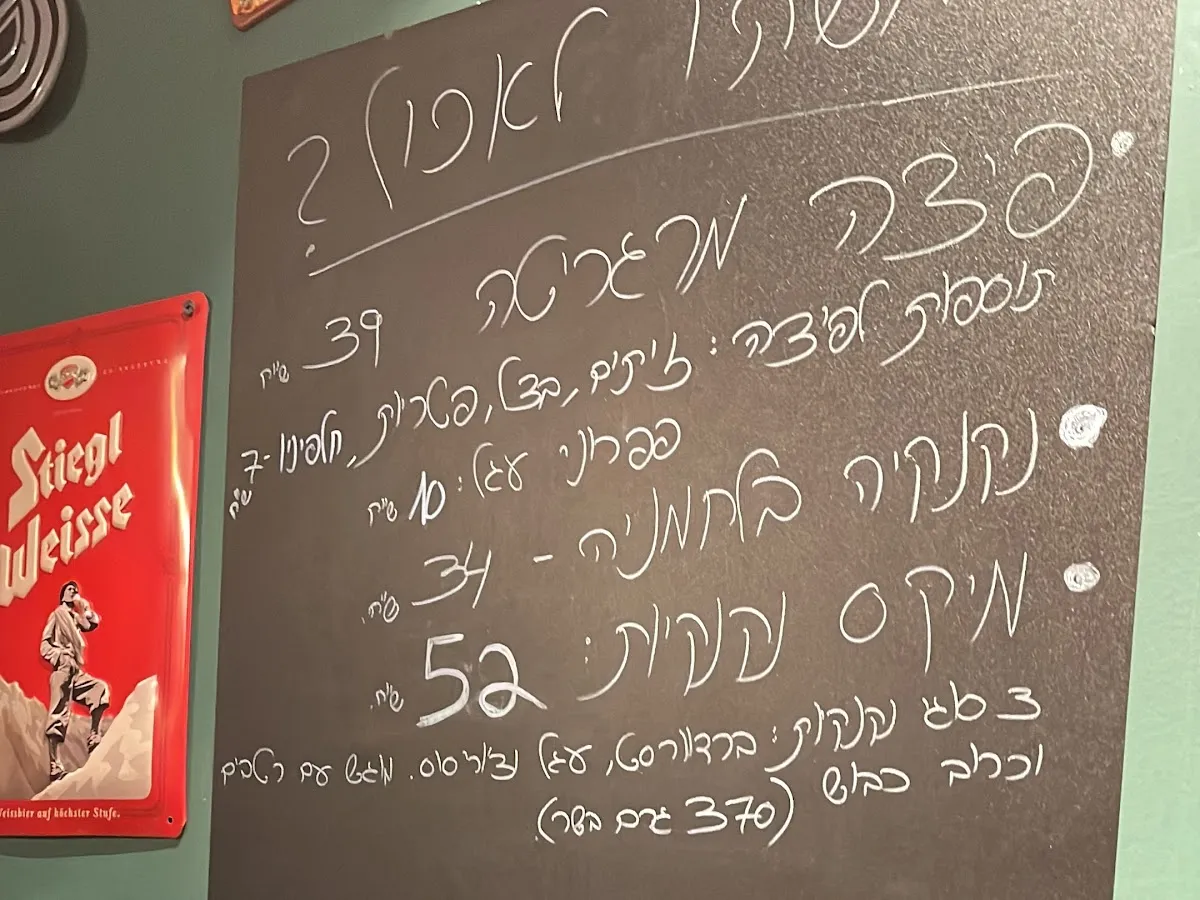 לאכול?
פיצה מרגריטה 39 ש״ח
תוספות לפיצה: זיתים, בצל, פטריות, חלפיניו -7 ש״ח
פפרוני עגל: 10 ש״ח
נקנקיה בלחמניה - 34 ש״ח.
מיקס נקנקיות: 52 ש״ח.
3 סוגי נקנקיות: ברדוורסט, עגל וצ׳וריסוס. מוגש עם רטבים
וכרוב כבוש (370 גרם בשר).
Stiegl
Weisse
Weissbier auf höchster Stufe.